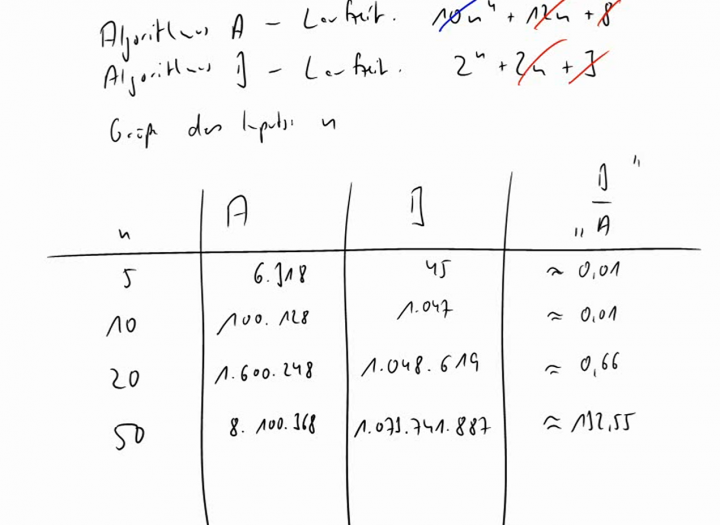 Algorithmus A – Laufzeit. 10n⁴ + 12n + 8
Algorithmus B – Laufzeit. 2ⁿ + 2n + 3
Größe des Inputs: n
n A B „B/A"
5 6.318 45 ≈ 0,01
10 100.128 1.047 ≈ 0,01
20 1.600.248 1.048.619 ≈ 0,66
50 8.100.368 1.073.741.887 ≈ 132,55